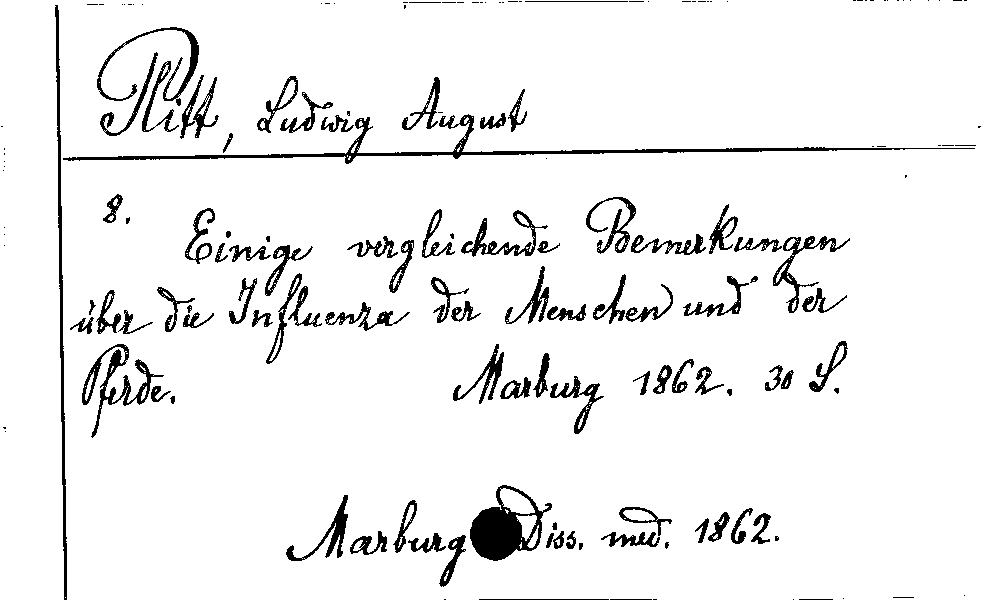 Plitt, Ludwig August
8. Einige vergleichende Bemerkungen
über die Influenza der Menschen und der
Pferde. Marburg 1862. 30 S.
Marburg Diss. med. 1862.